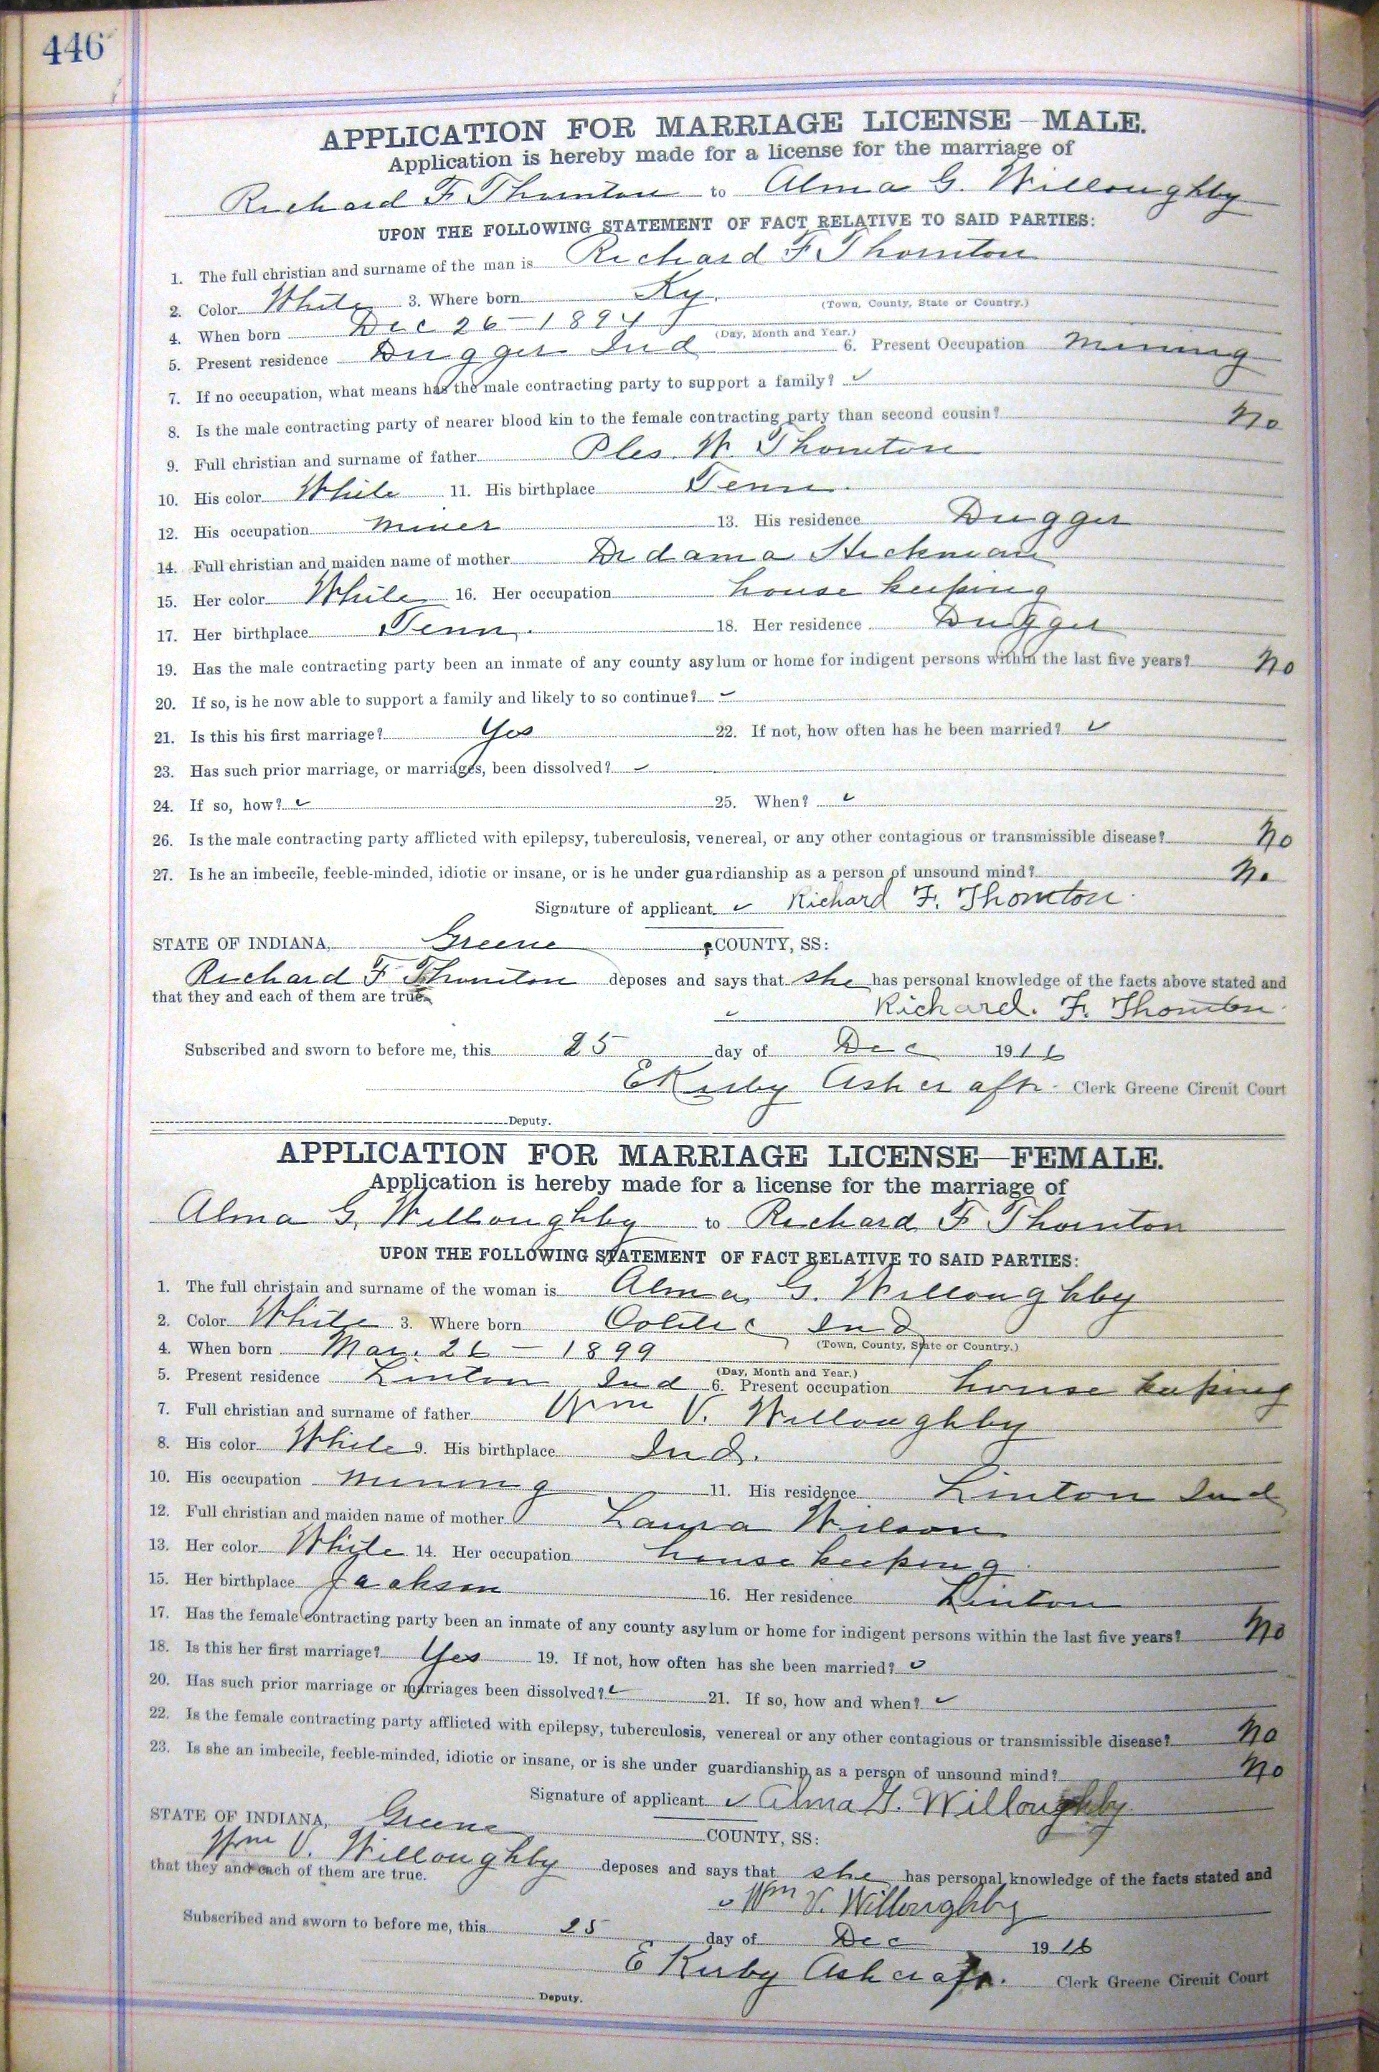 446
APPLICATION FOR MARRIAGE LICENSE—MALE.
Application is hereby made for a license for the marriage of
Richard F Thornton to Alma G. Willoughby
UPON THE FOLLOWING STATEMENT OF FACT RELATIVE TO SAID PARTIES:
1. The full christian and surname of the man is Richard F Thornton
2. Color White 3. Where born Ky. (Town, County, State or Country.)
4. When born Dec 26 - 1894 (Day, Month and Year.)
5. Present residence Dugger Ind 6. Present Occupation Mining
7. If no occupation, what means has the male contracting party to support a family? ✓
8. Is the male contracting party of nearer blood kin to the female contracting party than second cousin? No
9. Full christian and surname of father Ples. W. Thornton
10. His color White 11. His birthplace Tenn.
12. His occupation Miner 13. His residence Dugger
14. Full christian and maiden name of mother Hickman
15. Her color White 16. Her occupation house keeping
17. Her birthplace Tenn. 18. Her residence Dugger
19. Has the male contracting party been an inmate of any county asylum or home for indigent persons within the last five years? No
20. If so, is he now able to support a family and likely to so continue? ✓
21. Is this his first marriage? Yes 22. If not, how often has he been married? ✓
23. Has such prior marriage, or marriages, been dissolved? ✓
24. If so, how? ✓ 25. When? ✓
26. Is the male contracting party afflicted with epilepsy, tuberculosis, venereal, or any other contagious or transmissible disease? No
27. Is he an imbecile, feeble-minded, idiotic or insane, or is he under guardianship as a person of unsound mind? No
Signature of applicant ✓ Richard F. Thornton.
STATE OF INDIANA, Greene COUNTY, SS:
Richard F Thornton deposes and says that she has personal knowledge of the facts above stated and
that they and each of them are true.
✓ Richard. F. Thornton.
Subscribed and sworn to before me, this 25 day of Dec 1916
E Kirby Ashcraft. Clerk Greene Circuit Court
Deputy.
APPLICATION FOR MARRIAGE LICENSE—FEMALE.
Application is hereby made for a license for the marriage of
Alma G. Willoughby to Richard F Thornton
UPON THE FOLLOWING STATEMENT OF FACT RELATIVE TO SAID PARTIES:
1. The full christain and surname of the woman is Alma G. Willoughby
2. Color White 3. Where born Oolitic, Ind (Town, County, State or Country.)
4. When born Mar. 26 - 1899 (Day, Month and Year.)
5. Present residence Linton Ind 6. Present occupation house keeping
7. Full christian and surname of father Wm V. Willoughby
8. His color White 9. His birthplace Ind.
10. His occupation Mining 11. His residence Linton Ind
12. Full christian and maiden name of mother Laura Wilson
13. Her color White 14. Her occupation house keeping
15. Her birthplace Jackson 16. Her residence Linton
17. Has the female contracting party been an inmate of any county asylum or home for indigent persons within the last five years? No
18. Is this her first marriage? Yes 19. If not, how often has she been married? ✓
20. Has such prior marriage or marriages been dissolved? ✓ 21. If so, how and when? ✓
22. Is the female contracting party afflicted with epilepsy, tuberculosis, venereal or any other contagious or transmissible disease? No
23. Is she an imbecile, feeble-minded, idiotic or insane, or is she under guardianship as a person of unsound mind? No
Signature of applicant ✓ Alma G. Willoughby
STATE OF INDIANA, Greene COUNTY, SS:
Wm V. Willoughby deposes and says that she has personal knowledge of the facts stated and
that they and each of them are true.
✓ Wm V. Willoughby
Subscribed and sworn to before me, this 25 day of Dec 1916
E Kirby Ashcraft. Clerk Greene Circuit Court
Deputy.